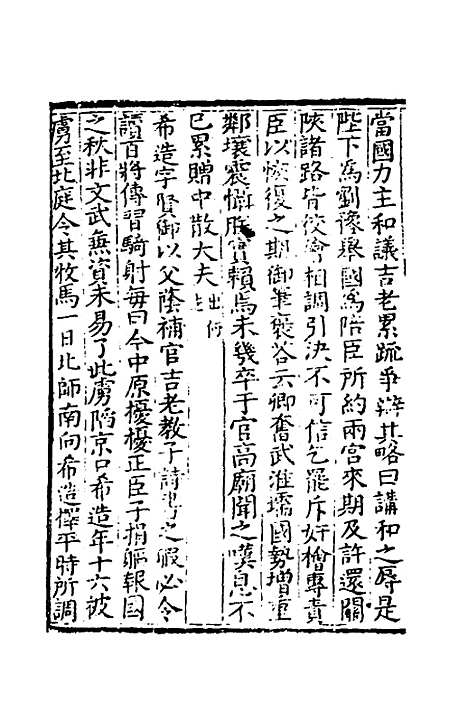 當國力主和議吉老累疏爭辯其略曰講和之辱是
陛下為劉豫舉國為陪臣所約兩宮來期及許還關
陝諸路皆佼獪相調引決不可信乞罷斥奸檜專責
臣以恢復之期御筆褒荅云卿奮武淮壖國勢增重
鄰壤震懾朕實賴焉未幾卒于官高廟聞之嘆息不
已累贈中散大夫
希造字賢御以父蔭補官吉老教子詩書之暇必令
讀百將傳習騎射每曰今中原擾擾正臣子捐軀報國
之秋非文武無資未易了此虜陷京口希造年十六被
虜至北庭令其牧馬一日北師南向希造擇平時所調